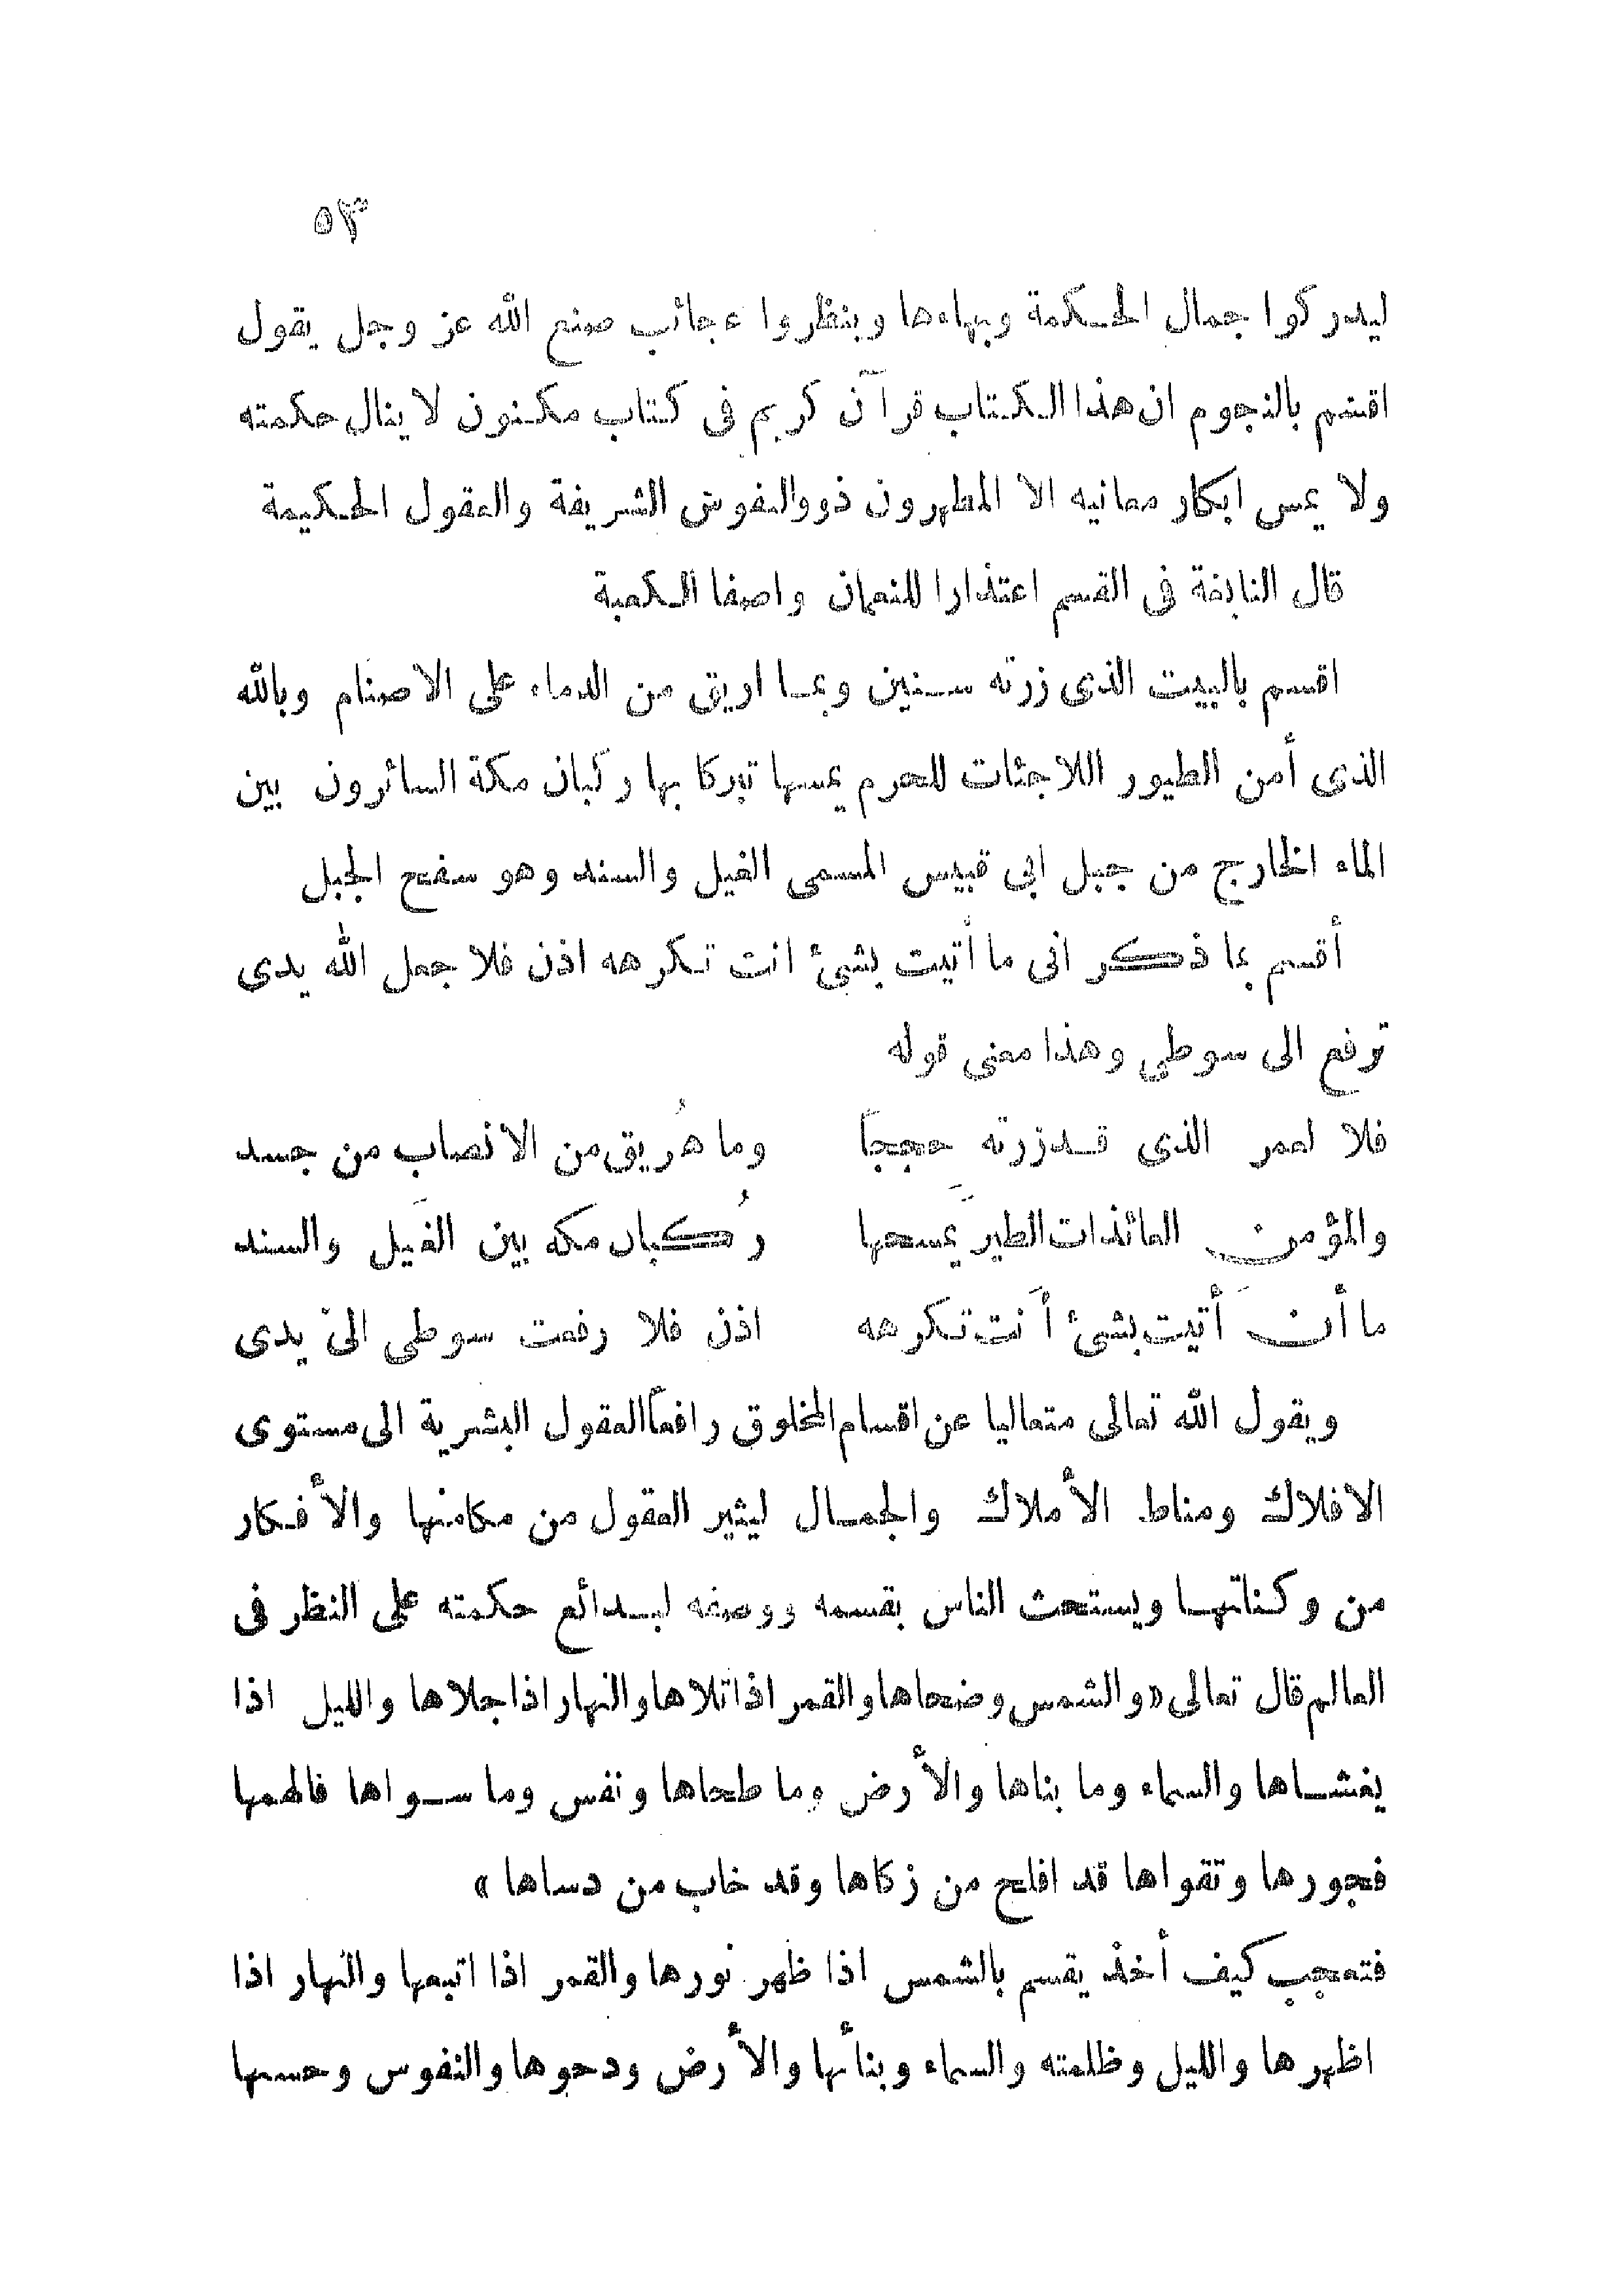 ٥٣
ليدركوا جمال الحكمة وبهاءها وينظروا عجائب صنع الله عز وجل يقول
اقسم بالنجوم ان هذا الكتاب قرآن كريم فى كتاب مكنون لا ينال حكمته
ولا يمس ابكار معانيه الا المطهرون ذوو النفوس الشريفة والعقول الحكيمة
قال النابغة فى القسم اعتذارا للنعمان واصفا الكعبة
اقسم بالبيت الذى زرته سنين وبما اريق من الدماء على الاصنام وبالله
الذى أمن الطيور اللاجئات للحرم يمسها تبركا بها ركبان مكة السائرون بين
الماء الخارج من جبل ابى قبيس المسمى الغيل والسند وهو سفح الجبل
أقسم بما ذكر انى ما أتيت بشئ انت تكرهه اذن فلا جعل الله يدى
ترفع الى سوطى وهذا معنى قوله
فلا لعمر الذى قد زرته حججاً وما هُريق من الانصاب من جسد
والمؤمن العائذات الطيرَ يمسحها رُكبان مكه بين الغَيل والسند
ما أن أتيت بشئ أنت تكرهه اذن فلا رفعت سوطى الىّ يدى
ويقول الله تعالى متعاليا عن اقسام المخلوق رافعاً العقول البشرية الى مستوى
الافلاك ومناط الأملاك والجمال ليثير العقول من مكامنها والأفكار
من وكناتها ويستحث الناس بقسمه ووصفه لبدائع حكمته على النظر فى
العالم قال تعالى «والشمس وضحاها والقمر اذا تلاها والنهار اذا جلاها والليل اذا
يغشاها والسماء وما بناها والأرض وما طحاها ونفس وما سواها فالهمها
فجورها وتقواها قد افلح من زكاها وقد خاب من دساها»
فتعجب كيف أخذ يقسم بالشمس اذا ظهر نورها والقمر اذا اتبعها والنهار اذا
اظهرها والليل وظلمته والسماء وبنائها والأرض ودحوها والنفوس وحسنها